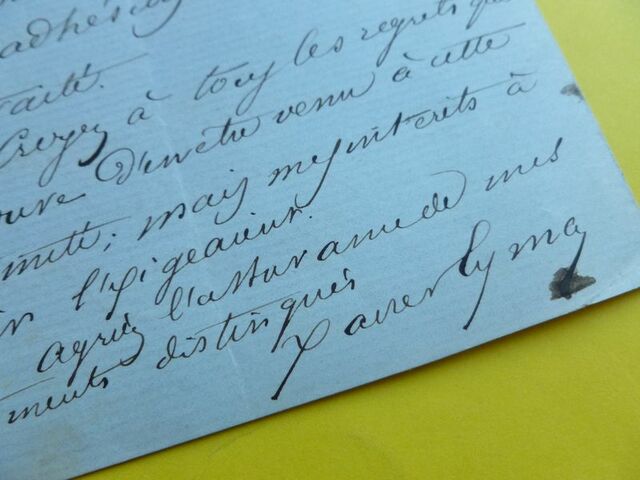 adhés
faité.
Croyez à tous les regrets que
ouve d'en être venu à cette
mité; mais mes interêts à
in l'exigeaient.
agréez l'assurance de mes
ments distingués
Xavier Eyma